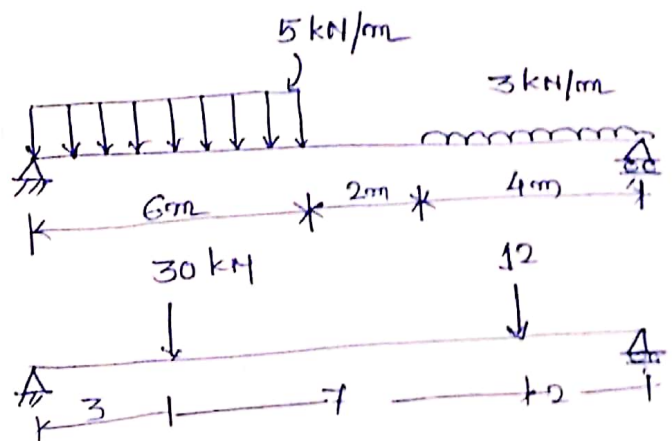 5 kN/m
3 kN/m
6m 2m 4m
30 kN 12
3 7 2